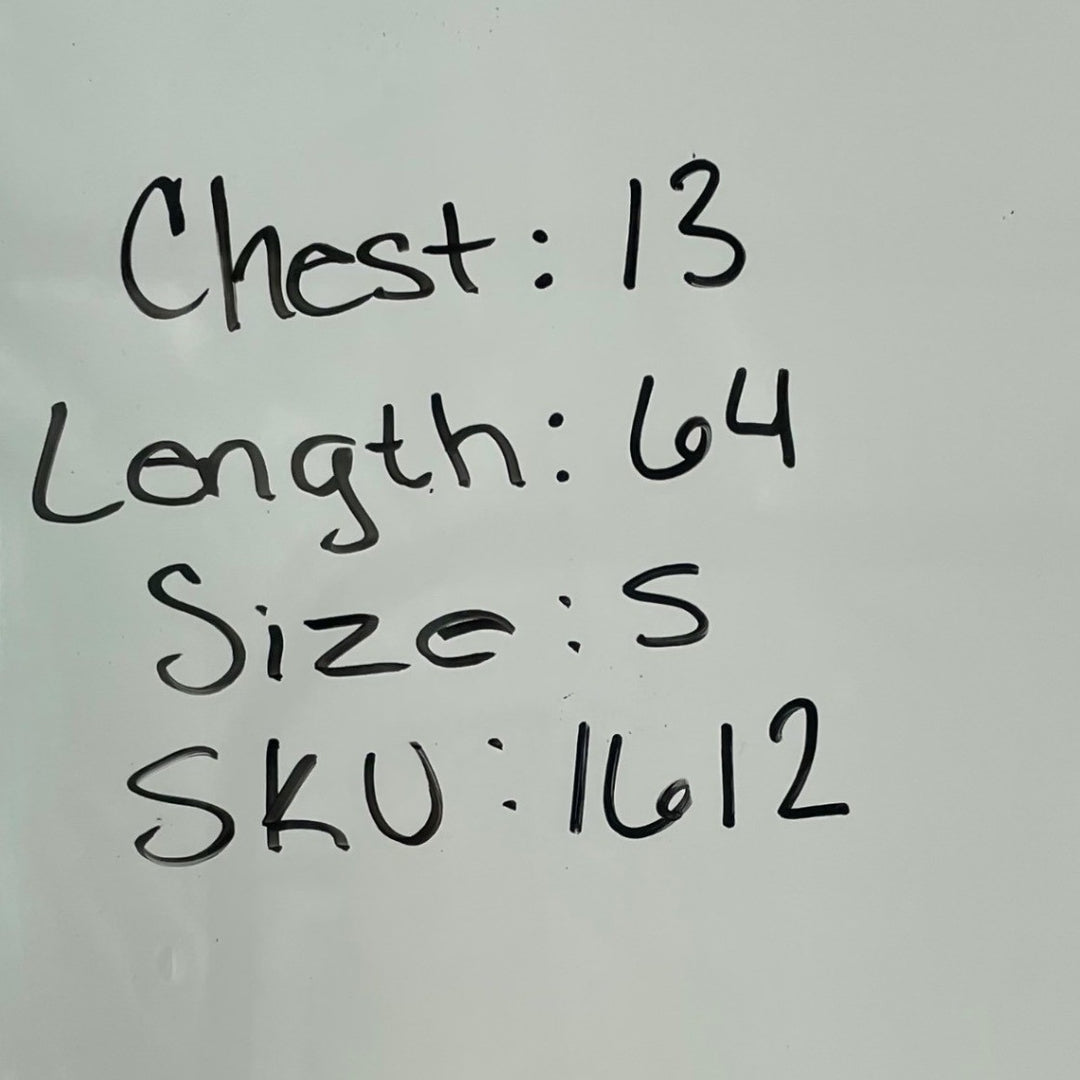 Chest: 13
Length: 64
Size: S
SKU: 1612